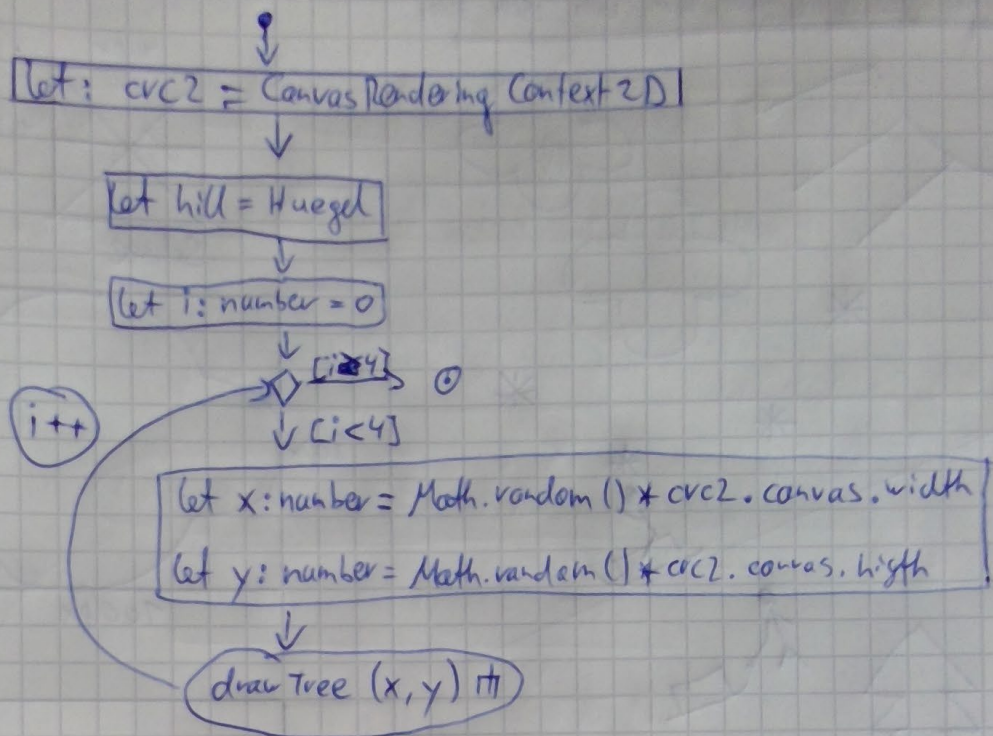 let: crc2 = CanvasRendering Context 2D
let hill = Huegel
let i: number = 0
[i 4]
i++
[i<4]
let x: number = Math.random () * crc2. canvas. width
let y: number = Math. random () * crc2. canvas. higth
draw Tree (x, y)